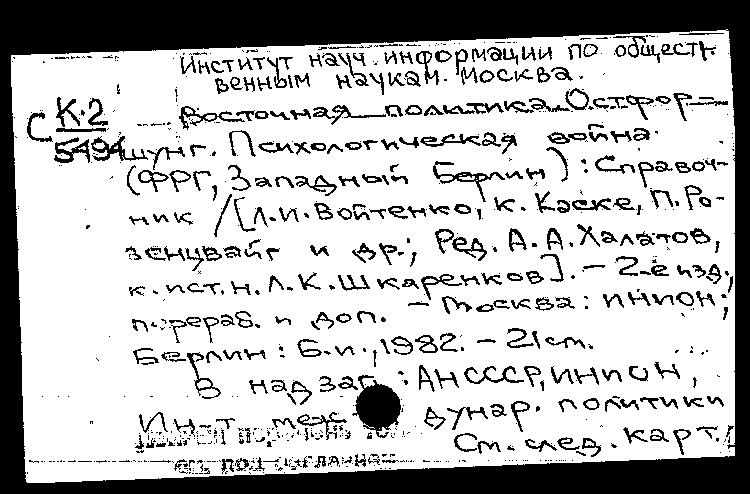 Институт науч. информации по общест-
венным наукам. Москва.
К.2
Восточная политика. Остфор-
С 5494 шунг. Психологическая война
(ФРГ, Западный Берлин): Справоч-
ник /[Л.И. Войтенко, К. Каске, П. Ро-
зенцвайг и др.; Ред. А.А. Халатов,
к.ист.н. Л.К. Шкаренков]. - 2-е изд.,
перераб. и доп. - Москва: ИНИОН;
Берлин: Б.и., 1982. - 21 см.
В надзаг.: АН СССР, ИНИОН,
Ин-т меж дунар. политики
См. след. карт.